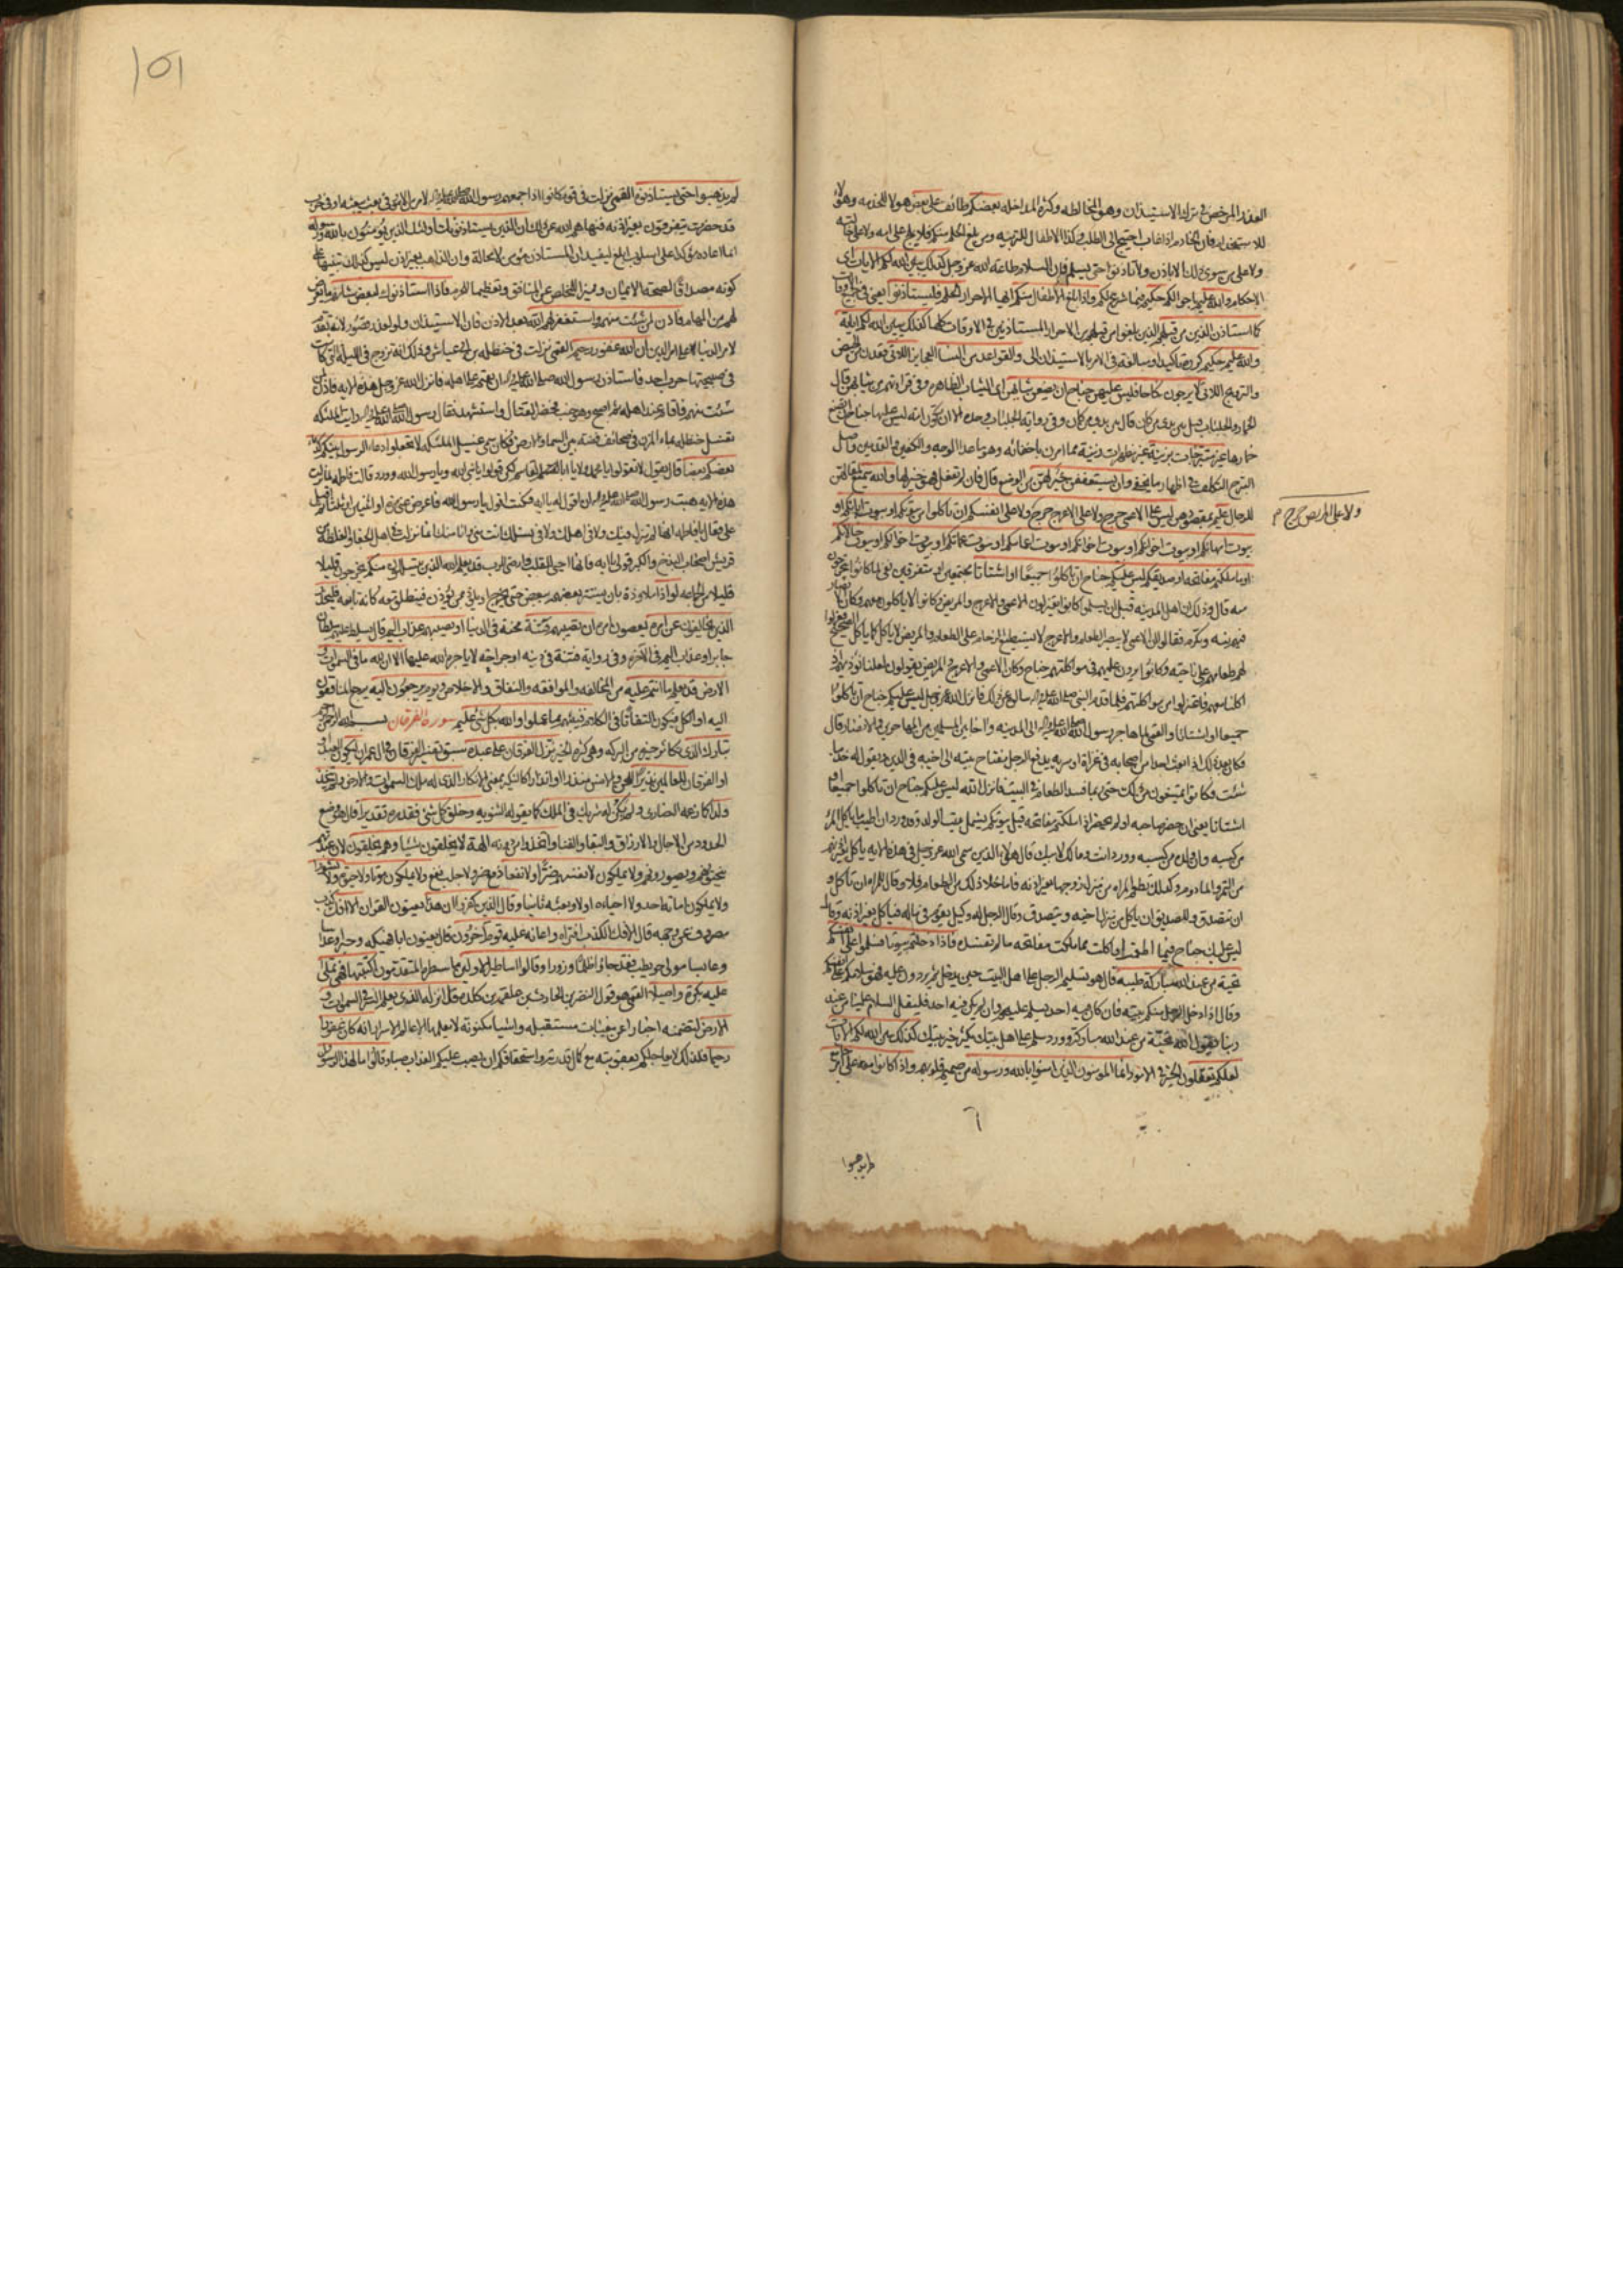 العذر المرخص في ترك الاستيذان وهو المخالطه وكثرة المداخله بعضكم طائف على بعض هولا للخدمه وهولاء
للاستخدام فان الخادم اذا غاب احتيج الى الطلب وكذا الاطفال للتربيه ومن بلغ الحلم منكم فلا يلج على امه ولا على ابنته
ولا على من سوى ذلك الا باذن ولا تاذنوا حتى يسلم فان السلام طاعة لله عز وجل كذلك يبين الله لكم الايات اى
الاحكام والله عليم باحوالكم حكيم فيما شرع لكم واذا بلغ الاطفال منكم ايها الاحرار الحلم فليستاذنوا يعني في جميع الاوقات
كما استاذن الذين من قبلهم الذين بلغوا من قبلهم من الاحرار المستاذنين في الاوقات كلها كذلك يبين الله لكم اياته
والله عليم حكيم كرره تاكيدا ومبالغه في الامر بالاستيذان والقواعد من النسا العجايز اللاتي قعدن من الحيض
والتزويج اللاتي لا يرجون نكاحا فليس عليهن جناح ان يضعن ثيابهن اى الثياب الظاهره وفي قراءتهم من ثيابهن قال
الخمار والجلباب قيل بين يدى من كان قال بين يدى من كان وفي رواية الجلباب وحده الا ان تكون امه ليس عليها جناح ان تضع
خمارها غير متبرجات بزينة غير مظهرات زينة مما امرن باخفائه وهو ما عدا الوجه والكفين والقدمين واصل
التبرج التكلف في اظهار ما يخفى وان يستعففن خير لهن من الوضع قال فان لم تفعل فهو خير لها والله سميع لمقالتهن
للرجال عليم بمقصودهن ليس على الاعمى حرج ولا على الاعرج حرج ولا على انفسكم ان تاكلوا من بيوتكم او بيوت ابائكم او
ولا على المريض حرج م
بيوت امهاتكم او بيوت اخوانكم او بيوت اخواتكم او بيوت اعمامكم او بيوت عماتكم او بيوت اخوالكم او بيوت خالاتكم
او ما ملكتم مفاتحه او صديقكم ليس عليكم جناح ان تاكلوا جميعا او اشتاتا مجتمعين او متفرقين
قال وذلك ان اهل المدينه قبل ان يسلموا كانوا يعتزلون الاعمى والاعرج والمريض وكانوا لا ياكلون معهم وكان الانصار
فيهم تيه وتكرم فقالوا ان الاعمى لا يبصر الطعام والاعرج لا يستطيع الزحام على الطعام والمريض لا ياكل كما ياكل الصحيح
لهم طعامهم على ناحيه وكانوا يرون عليهم في مواكلتهم جناح وكان الاعمى والاعرج والمريض يقولون لعلنا نؤذيهم اذا
اكلنا معهم فاعتزلوا من مواكلتهم فلما قدم النبي صلى الله عليه واله سالوه عن ذلك فانزل الله عز وجل ليس عليكم جناح ان تاكلوا
جميعا او اشتاتا والقمي لما هاجر رسول الله صلى الله عليه واله الى المدينه واخا بين المسلمين من المهاجرين والانصار قال
فكان بعد ذلك اذا بعث احدا من اصحابه في غزاة او سريه يدفع الرجل مفتاح بيته الى اخيه في الدين ويقول له خذ ما
شئت وكل ما شئت فكانوا يمتنعون من ذلك حتى ربما فسد الطعام في البيت فانزل الله ليس عليكم جناح ان تاكلوا جميعا او
اشتاتا يعني ان حضر صاحبه او لم يحضر اذا ملكتم مفاتحه قيل بيوتكم يشمل بيت الولد وقد ورد ان اطيب ما ياكل المرء
من كسبه وان ولده من كسبه وورد انت ومالك لابيك قال هؤلاء الذين سمى الله عز وجل في هذه الايه ياكل بغير اذنهم
من التمر والمادوم وكذلك تطعم المراه من منزل زوجها بغير اذنه فاما ما خلا ذلك من الطعام فلا وقال للمراه ان تاكل و
ان تتصدق وللصديق ان ياكل من منزل اخيه ويتصدق وقال الرجل له وكيل يقوم في ماله فياكل بغير اذنه وقال
ليس عليك جناح فيما اطعمت او اكلت مما ملكت مفاتحه ما لم تفسده فاذا دخلتم بيوتا فسلموا على انفسكم
تحية من عند الله مباركة طيبة قال هو تسليم الرجل على اهل البيت حين يدخل ثم يردون عليه فهو سلامكم على انفسكم
وقال اذا دخل الرجل منكم بيته فان كان فيه احد يسلم عليهم وان لم يكن فيه احد فليقل السلام علينا من عند
ربنا يقول الله تحية من عند الله مباركة وورد سلم على اهل بيتك يكثر خير بيتك كذلك يبين الله لكم الايات
لعلكم تعقلون الخير في الامور انما المومنون الذين امنوا بالله ورسوله من صميم قلوبهم واذا كانوا معه على امر
لم يذهبوا
١٥١
لم يذهبوا حتى يستاذنوه القمي نزلت في قوم كانوا اذا جمعهم رسول الله صلى الله عليه واله لامر من الامور في بعث يبعثه او في حرب
قد حضرت يتفرقون بغير اذنه فنهاهم الله عن ذلك ان الذين يستاذنونك اولئك الذين يؤمنون بالله ورسوله
انما اعاده مؤكدا على اسلوب ابلغ ليفيد ان المستاذن مؤمن لا محالة وان الذاهب بغير اذن ليس كذلك تنبيها على
كونه مصداقا لصحة الايمان ومميزا للمخلص عن المنافق وتعظيما للجرم فاذا استاذنوك لبعض شانهم ما يعرض
لهم من المهام فاذن لمن شئت منهم واستغفر لهم الله بعد الاذن فان الاستيذان ولو لعذر قصور لانه تقديم
لامر الدنيا على امر الدين ان الله غفور رحيم القمي نزلت في حنظله بن ابي عياش وذلك انه تزوج في الليله التي كانت
في صبيحتها حرب احد فاستاذن رسول الله صلى الله عليه واله ان يقيم عند اهله فانزل الله عز وجل هذه الايه فاذن لمن
شئت منهم فاقام عند اهله ثم اصبح وهو جنب فحضر القتال واستشهد فقال رسول الله صلى الله عليه واله رايت الملئكه
تغسل حنظله بماء المزن في صحائف فضه بين السماء والارض فكان سمى غسيل الملئكه لا تجعلوا دعاء الرسول بينكم كدعاء
بعضكم بعضا قال يقول لا تقولوا يا محمد ولا يا ابا القاسم لكن قولوا يا نبي الله ويا رسول الله وورد قالت فاطمه لما نزلت
هذه الايه هبت رسول الله صلى الله عليه واله ان اقول له يا ابه فكنت اقول يا رسول الله فاعرض عني مرة او اثنتين او ثلثا ثم اقبل
على فقال يا فاطمه انها لم تنزل فيك ولا في اهلك ولا في نسلك انت مني وانا منك انما نزلت في اهل الجفا والغلظه من
قريش اصحاب البذخ والكبر قولي يا ابه فانها احيى للقلب وارضى للرب قد يعلم الله الذين يتسللون منكم يخرجون قليلا
قليلا من الجماعه لواذا ملاوذة بان يستتر بعضهم ببعض حتى يخرج او يلوذ بمن يؤذن فينطلق معه كانه تابعه فليحذر
الذين يخالفون عن امره يعصون امره ان تصيبهم فتنة محنة في الدنيا او يصيبهم عذاب اليم قال يسلط عليهم سلطان
جابر او عذاب اليم في الاخره وفي رواية فتنة في دينه او جراحة لا ياجره الله عليها الا ان لله ما في السموات و
الارض قد يعلم ما انتم عليه من المخالفه والموافقه والنفاق والاخلاص ويوم يرجعون اليه يرجع المنافقون
اليه او الكل فيكون التفاتا في الكلام فينبئهم بما عملوا والله بكل شيء عليم سورة الفرقان بسم الله الرحمن الرحيم
تبارك الذي تكاثر خيره من البركه وهي كثرة الخير نزل الفرقان على عبده سبق تفسير الفرقان في ال عمران ليكون العبد
او الفرقان للعالمين نذيرا للجن والانس منذرا او انذارا كالنكير بمعنى الانكار الذي له ملك السموات والارض ولم يتخذ
ولدا كما زعمه النصارى ولم يكن له شريك في الملك كما يقوله الثنويه وخلق كل شيء فقدره تقديرا قال هو وضع
الحدود من الاجال والارزاق والبقاء والفناء واتخذوا من دونه الهة لا يخلقون شيئا وهم يخلقون لان عبدتهم
ينحتونهم ويصورونهم ولا يملكون لانفسهم ضرا ولا نفعا دفع ضر ولا جلب نفع ولا يملكون موتا ولا حيوة ولا نشورا
ولا يملكون اماتة احد ولا احياءه اولا وبعثه ثانيا وقال الذين كفروا ان هذا يعنون القران الا افك كذب
مصروف عن وجهه قال الافك الكذب افتراه واعانه عليه قوم اخرون قال يعنون ابا فهيكه وحبرا وعداسا
وعابسا مولى حويطب فقد جاؤا ظلما وزورا وقالوا اساطير الاولين ما سطره المتقدمون اكتتبها فهي تملى
عليه بكرة واصيلا القمي هو قول النضر بن الحارث بن علقمه بن كلده قل انزله الذي يعلم السر في السموات و
الارض لتضمنه اخبارا عن مغيبات مستقبله واشيا مكنونه لا يعلمها الا عالم الاسرار انه كان غفورا
رحيما فلذلك لا يعاجلكم بعقوبته مع كمال قدرته واستحقاقكم ان يصب عليكم العذاب صبا وقالوا ما لهذا الرسول